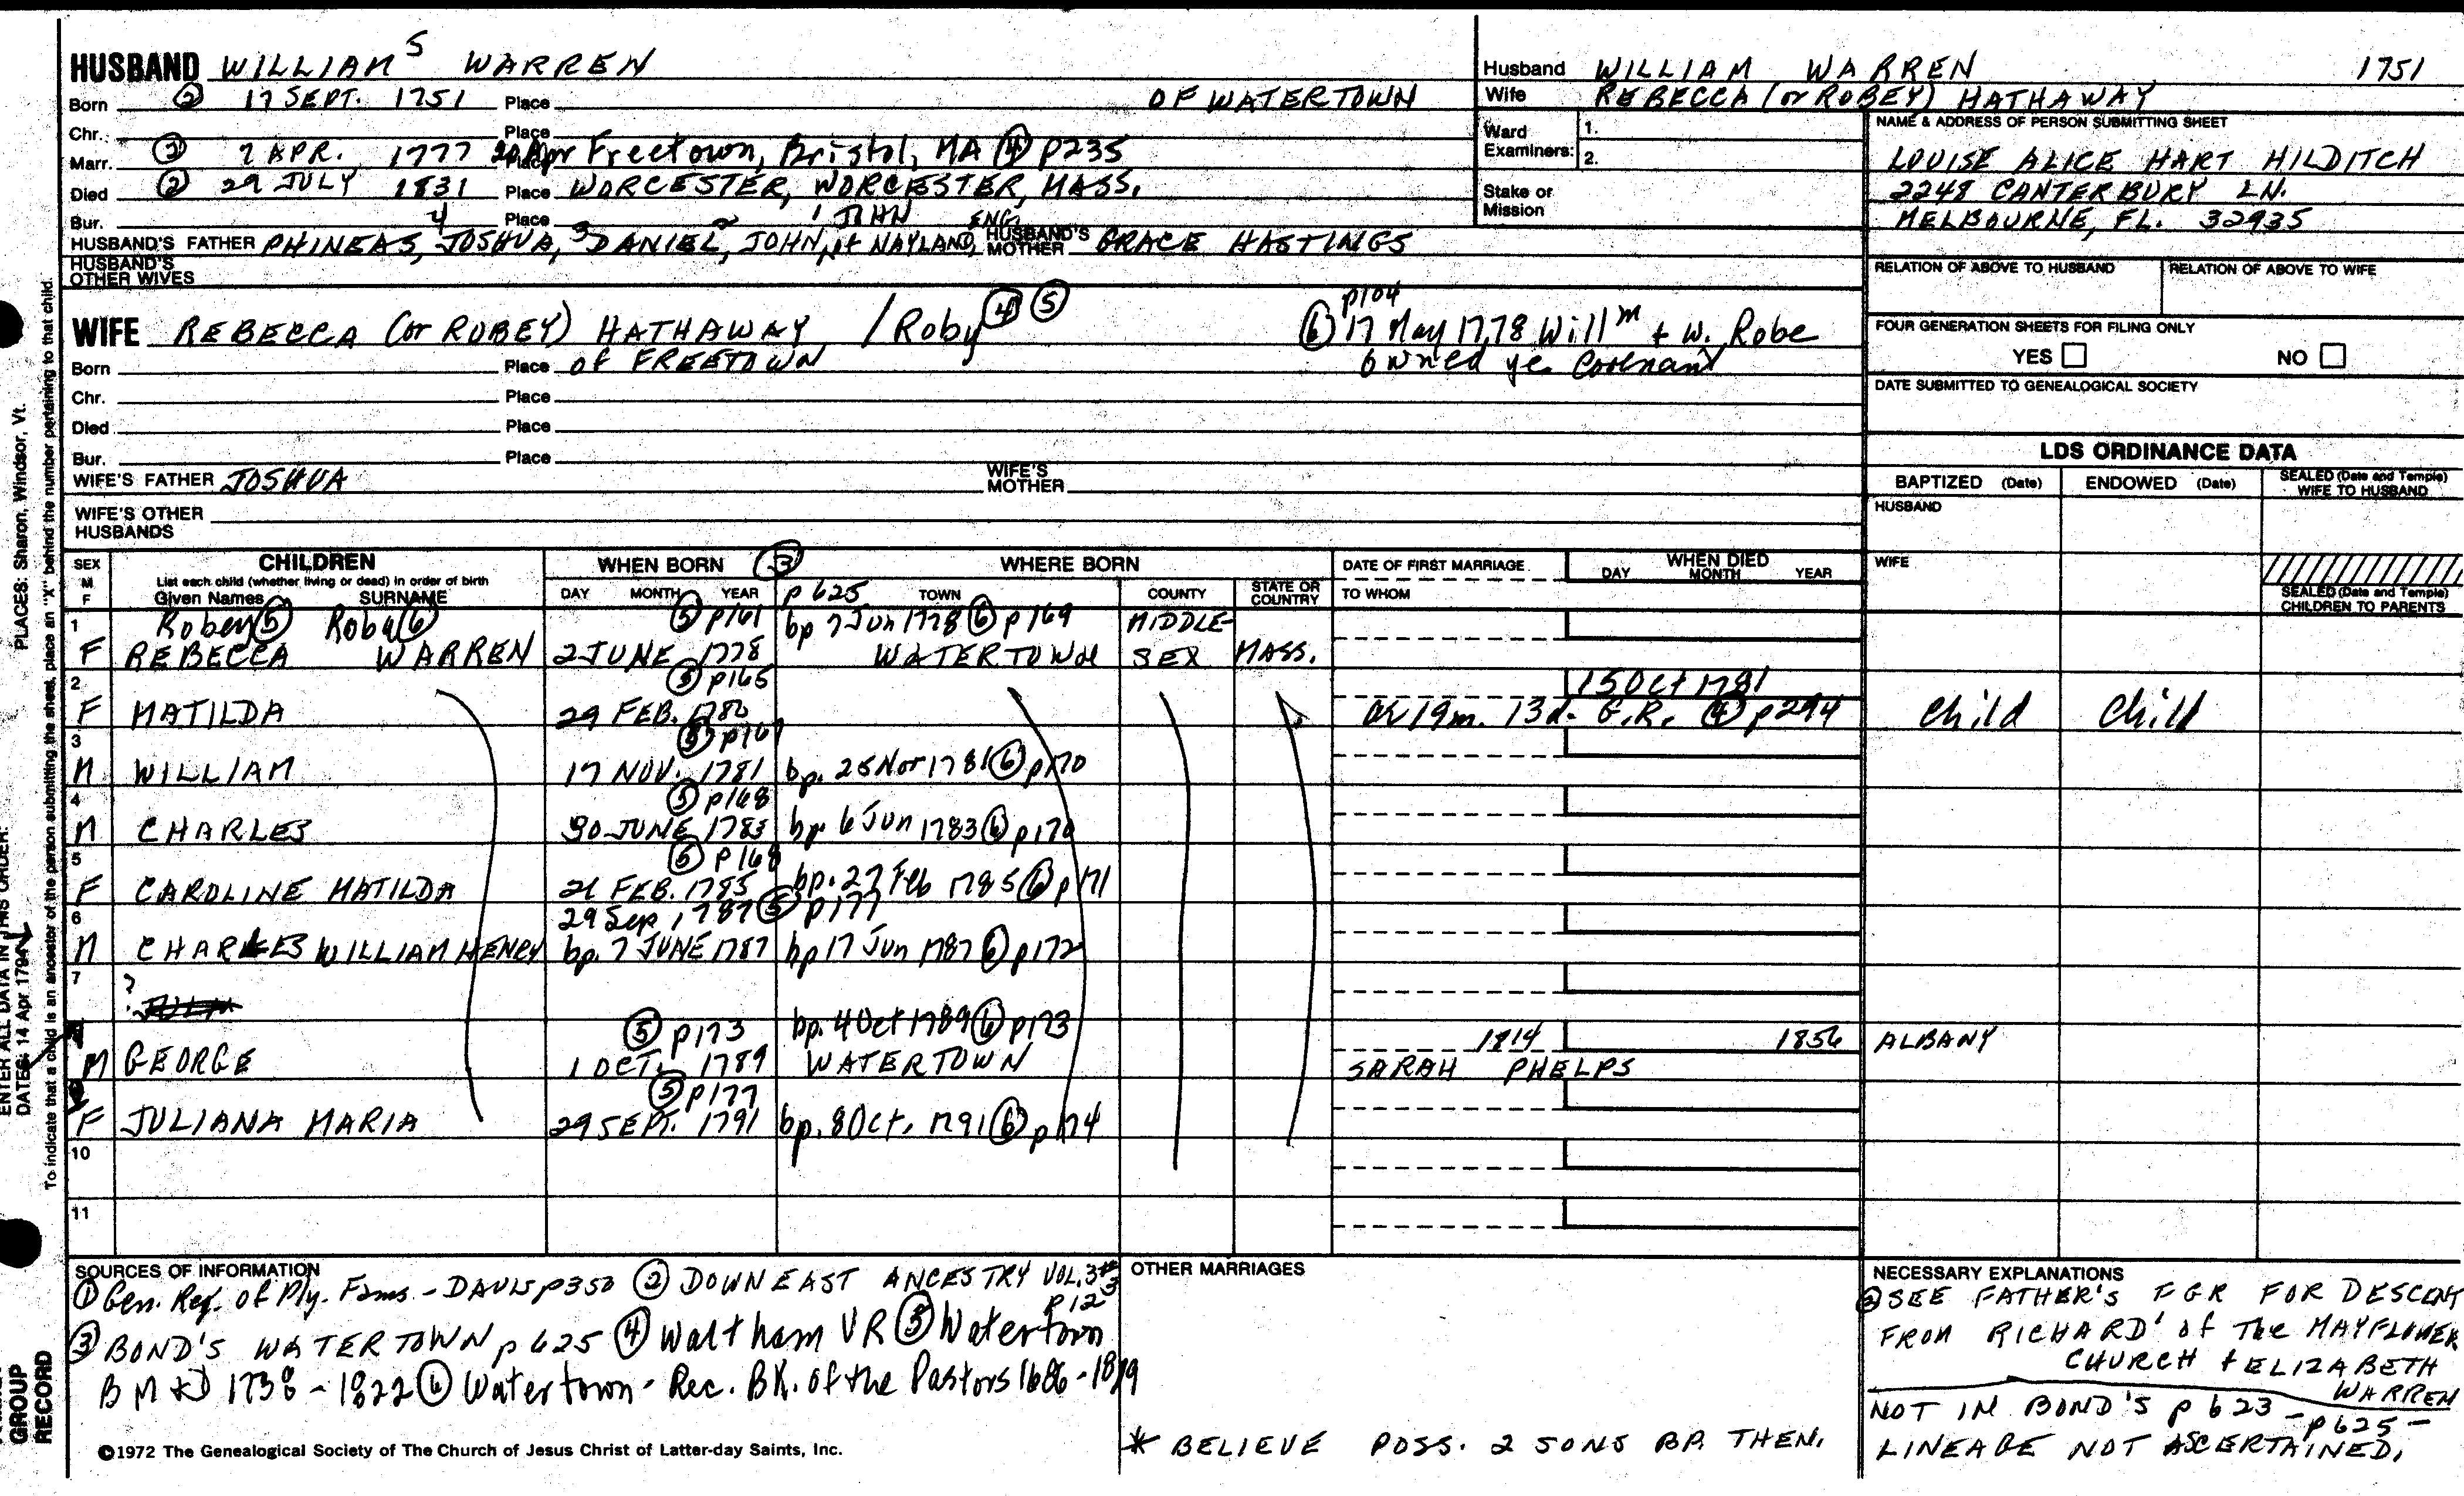 HUSBAND WILLIAM 5 WARREN
Born ② 17 SEPT. 1751 Place OF WATERTOWN
Chr. Place
Marr. ② 7 APR. 1777 Place Freetown, Bristol, MA ④ p235
Died ② 29 JULY 1831 Place WORCESTER, WORCESTER, MASS.
Bur. Place
HUSBAND'S FATHER PHINEAS, 4 JOSHUA, 3 DANIEL, 2 JOHN, 1 JOHN NAYLAND, ENG. HUSBAND'S MOTHER GRACE HASTINGS
HUSBAND'S OTHER WIVES
Husband WILLIAM WARREN 1751
Wife REBECCA (or ROBEY) HATHAWAY
Ward Examiners: 1.
2.
Stake or Mission
NAME & ADDRESS OF PERSON SUBMITTING SHEET
LOUISE ALICE HART HILDITCH
2248 CANTERBURY LN.
MELBOURNE, FL. 32935
RELATION OF ABOVE TO HUSBAND RELATION OF ABOVE TO WIFE
FOUR GENERATION SHEETS FOR FILING ONLY
YES NO
DATE SUBMITTED TO GENEALOGICAL SOCIETY
WIFE REBECCA (or ROBEY) HATHAWAY / Roby ④ ⑤
p104
⑥ 17 May 1778 Will m + w. Robe
owned ye Covenant
Born Place of FREETOWN
Chr. Place
Died Place
Bur. Place
WIFE'S FATHER JOSHUA WIFE'S MOTHER
WIFE'S OTHER HUSBANDS
LDS ORDINANCE DATA
BAPTIZED (Date) ENDOWED (Date) SEALED (Date and Temple) WIFE TO HUSBAND
HUSBAND
WIFE
SEALED (Date and Temple) CHILDREN TO PARENTS
SEX M F CHILDREN
List each child (whether living or dead) in order of birth
Given Names SURNAME
WHEN BORN ③ WHERE BORN
DAY MONTH YEAR p 625 TOWN COUNTY STATE OR COUNTRY
DATE OF FIRST MARRIAGE
TO WHOM
WHEN DIED
DAY MONTH YEAR
1 Robey ⑤ Roba ⑥ ⑤ p161 bp 7 Jun 1778 ⑥ p169 MIDDLE-
F REBECCA WARREN 2 JUNE 1778 WATERTOWN SEX MASS.
2 ⑤ p165 15 Oct 1781
F MATILDA 29 FEB. 1780 19m. 13d. G.R. ④ p294 Child Child
3 ⑤
M WILLIAM 17 NOV. 1781 bp. 25 Nov 1781 ⑥ p170
4 ⑤ p168
M CHARLES 30 JUNE 1783 bp. 6 Jun 1783 ⑥ p170
5 ⑤ p168
F CAROLINE MATILDA 21 FEB. 1785 bp. 27 Feb 1785 ⑥ p171
6 29 Sep 1787 ⑤ p177
M CHARLES WILLIAM HENRY bp. 7 JUNE 1787 bp 17 Jun 1787 ⑥ p172
7 ?
⑤ p173 bp. 4 Oct 1789 ⑥ p173 1814 1856 ALBANY
M GEORGE 1 OCT. 1789 WATERTOWN SARAH PHELPS
⑤ p177
F JULIANA MARIA 29 SEPT. 1791 bp. 8 Oct. 1791 ⑥ p174
10
11
SOURCES OF INFORMATION
① Gen. Reg. of Ply. Fams - DAVIS p350 ② DOWNEAST ANCESTRY VOL. 3 #3 p123
③ BOND'S WATERTOWN p 625 ④ Waltham VR ⑤ Watertown
B M & D 1738 - 1822 ⑥ Watertown - Rec. BK. of the Pastors 1686 - 1819
©1972 The Genealogical Society of The Church of Jesus Christ of Latter-day Saints, Inc.
OTHER MARRIAGES
* BELIEVE POSS. 2 SONS BP. THEN.
NECESSARY EXPLANATIONS
② SEE FATHER'S FGR FOR DESCENT
FROM RICHARD 1 of The MAYFLOWER
CHURCH + ELIZABETH
WARREN
NOT IN BOND'S p 623 - p 625 -
LINEAGE NOT ASCERTAINED.
PLACES: Sharon, Windsor, Vt.
To indicate that a child is an ancestor of the person submitting the sheet, place an "X" behind the number pertaining to that child.
ENTER ALL DATA IN THIS ORDER:
DATES: 14 Apr 1794
GROUP
RECORD